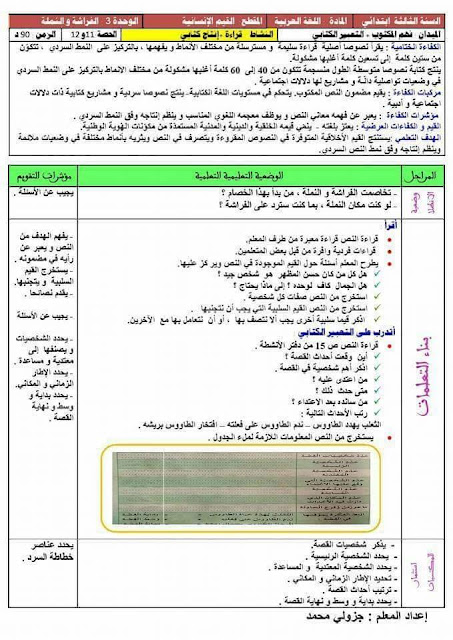 السنة الثالثة ابتدائي    المادة    اللغة العربية    المقطع    القيم الإنسانية    الوحدة 3    الفراشة و النملة
الميدان    فهم المكتوب - التعبير الكتابي    النشاط    قراءة - إنتاج كتابي    الحصة 11و 12    الزمن    90 د
الكفاءة الختامية : يقرأ نصوصا أصلية قراءة سليمة و مسترسلة من مختلف الأنماط و يفهمها ، بالتركيز على النمط السردي ، تتكوّن
من ستين كلمة إلى تسعين كلمة أغلبها مشكولة.
ينتج كتابة نصوصا متوسطة الطول منسجمة تتكون من 40 إلى 60 كلمة أغلبها مشكولة من مختلف الأنماط بالتركيز على النمط السردي
في وضعيات تواصلية دالة و مشاريع لها دلالات اجتماعية .
مركبات الكفاءة : يقيم مضمون النص المكتوب. يتحكم في مستويات اللغة الكتابية- ينتج نصوصا سردية و مشاريع كتابية ذات دلالات
اجتماعية و أدبية .
مؤشرات الكفاءة : يعبر عن فهمه معاني النص و يوظف معجمه اللغوي المناسب و ينظم إنتاجه وفق النمط السردي.
القيم و الكفاءات العرضية : يعتز بلغته - ينمي قيمه الخلقية والدينية والمدنية المستمدة من مكوّنات الهوية الوطنية.
الهدف التعلمي :يستنتج القيم الأخلاقية المتوفرة في النصوص المقروءة ويتصرف في النص ويثريه بأنماط مختلفة في وضعيات ملائمة
وينظم إنتاجه وفق نمط النص السردي.
المراحل    الوضعية التعليمية التعلمية    مؤشرات التقويم
وضعية الانطلاق
- تخاصمت الفراشة و النملة ، من بدأ بهذا الخصام ؟
- لو كنت مكان النملة ، بما كنت سترد على الفراشة ؟
- يجيب عن الأسئلة .
بناء التعلمات
أقرأ
قراءة النص قراءة معبرة من طرف المعلم.
قراءات فردية وافرة من قبل بعض المتعلمين.
يطرح المعلم أسئلة حول القيم الموجودة في النص ويركز عليها.
هل كل من كان حسن المظهر هو شخص جيد ؟
هل الجمال كاف لوحده ؟ إلى ماذا يحتاج ؟
استخرج من النص صفات كل شخصية .
استخرج من النص القيم السلبية التي يجب أن نتجنبها .
اذكر قيما سلبية أخرى يجب ألا نتصف بها ، أو أن نتعامل بها مع الآخرين.
أتدرب على التعبير الكتابي
قراءة النص ص 15 من دفتر الأنشطة .
أين وقعت أحداث القصة ؟
اذكر أهم شخصية في القصة .
من اعتدى عليه ؟
متى حدث ذلك ؟
من سانده بعد الاعتداء ؟
رتب الأحداث التالية :
الثعلب يهدد الطاووس - ندم الطاووس على فعلته - افتخار الطاووس بريشه .
يستخرج من النص المعلومات اللازمة لملء الجدول .
- يفهم الهدف من
النص و يعبر عن
رأيه في مضمونه .
- يستخرج القيم
السلبية و يتجنبها.
- يقدم نصائحا .
- يجيب عن الأسئلة
- يحدد الشخصيات
و يصنفها إلى
معتدية و مساعدة .
- يحدد الإطار
الزماني و المكاني.
- يحدد بداية و
وسط و نهاية
القصة
استثمار المكتسبات
- يذكر شخصيات القصة.
- يحدد الشخصية الرئيسية .
- يحدد الشخصية المعتدية و المساعدة .
- تحديد الإطار الزماني و المكاني .
- ترتيب أحداث القصة .
- يحدد بداية و وسط و نهاية القصة
يحدد عناصر
خطاطة السرد .
إعداد المعلم : جزولي محمد